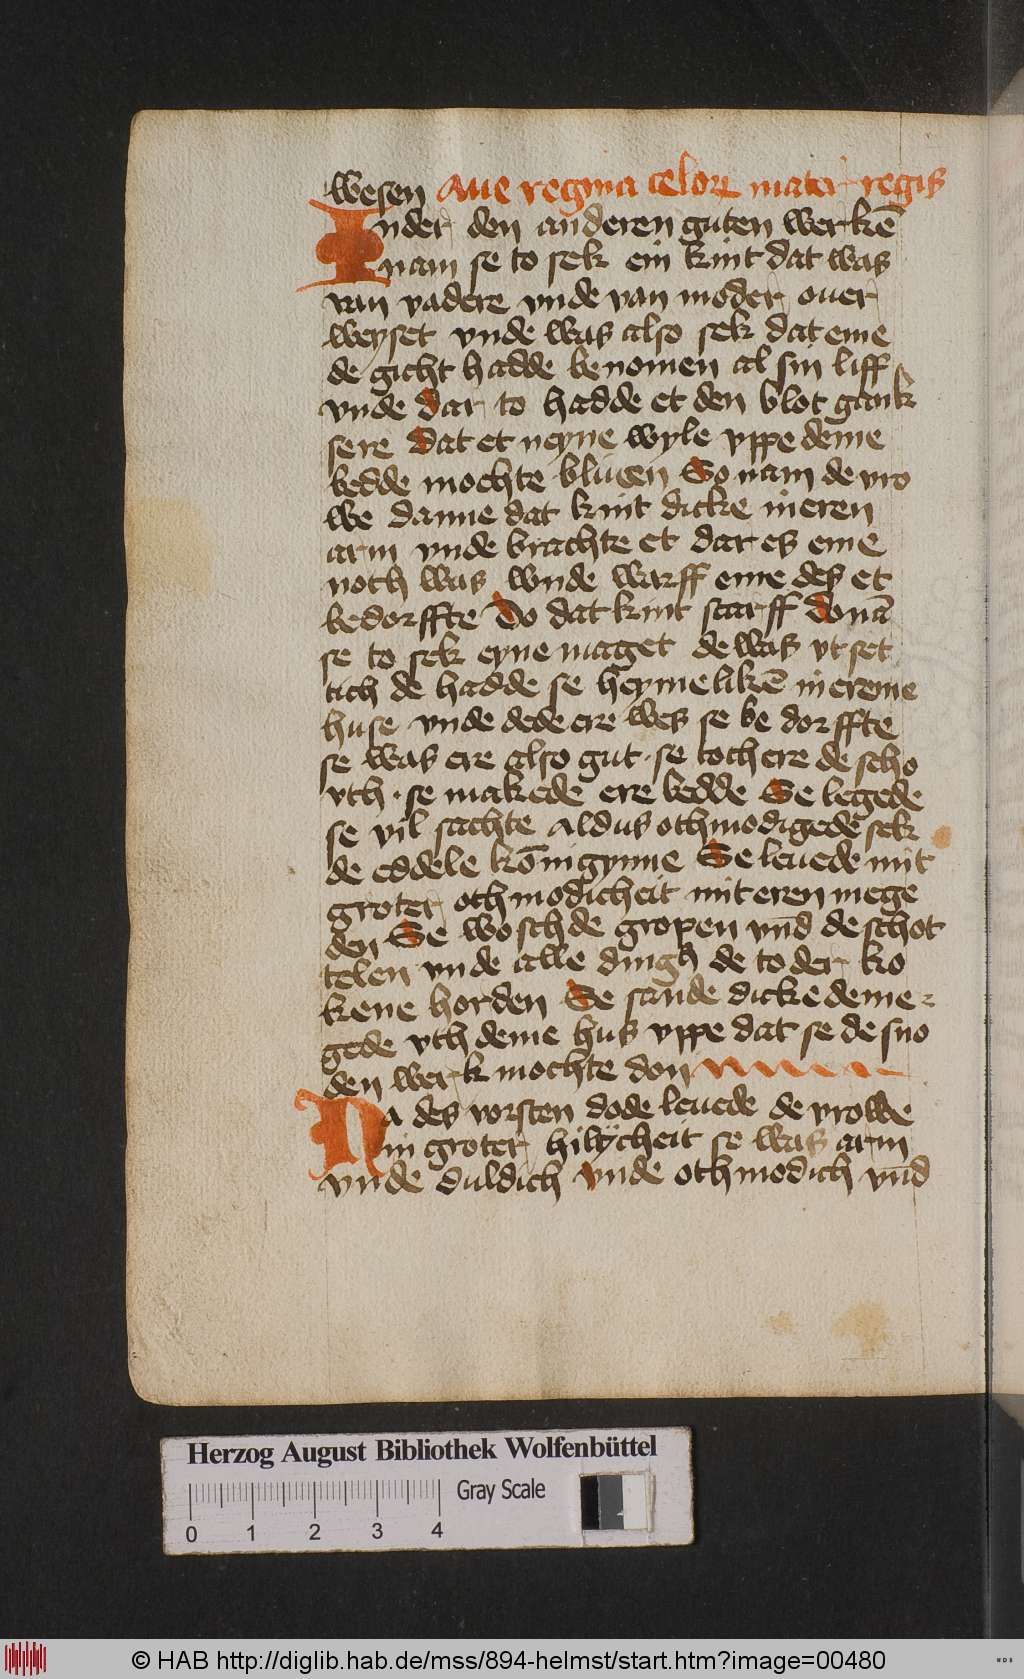 wesen Aue regina celoꝝ mater regis
Inder den anderen guten werkē
nam se to sek ein kint dat was
van vadere vnde van moder ouer
weyset vnde was also sek dat eme
de gicht hadde benomen al sin liff
vnde dar to hadde et den blot gank
sere dat et neyne wyle vppe deme
bedde mochte bliuen So nam de vro
we danne dat kint dicke in eren
arm vnde brachte et dar es eme
noth was vnde warff eme des et
bedorffte Do dat kint starff do nā
se to sek eyne maget de was vt set
tich de hadde se heymelikē in ereme
huse vnde dede ere wes se be dorffte
se was ere also gut · se toch ere de scho
vth · se makede ere bedde Se legede
se vil sachte Aldus othmodigede sek
de eddele kōnigynne Se leuede mit
groter othmodicheit mit eren mege
den Se wosch de gropen vn̄d de schot
telen vnde alle dingh de to der ko
kene horden Se sande dicke de me
gede vth deme hus vppe dat se de sno
den werk mochte don
Na des vorsten dode leuede de vrowe
in groter hilycheit se was arm
vnde duldich vnde othmodich vn̄d
Herzog August Bibliothek Wolfenbüttel
Gray Scale
0 1 2 3 4
© HAB http://diglib.hab.de/mss/894-helmst/start.htm?image=00480